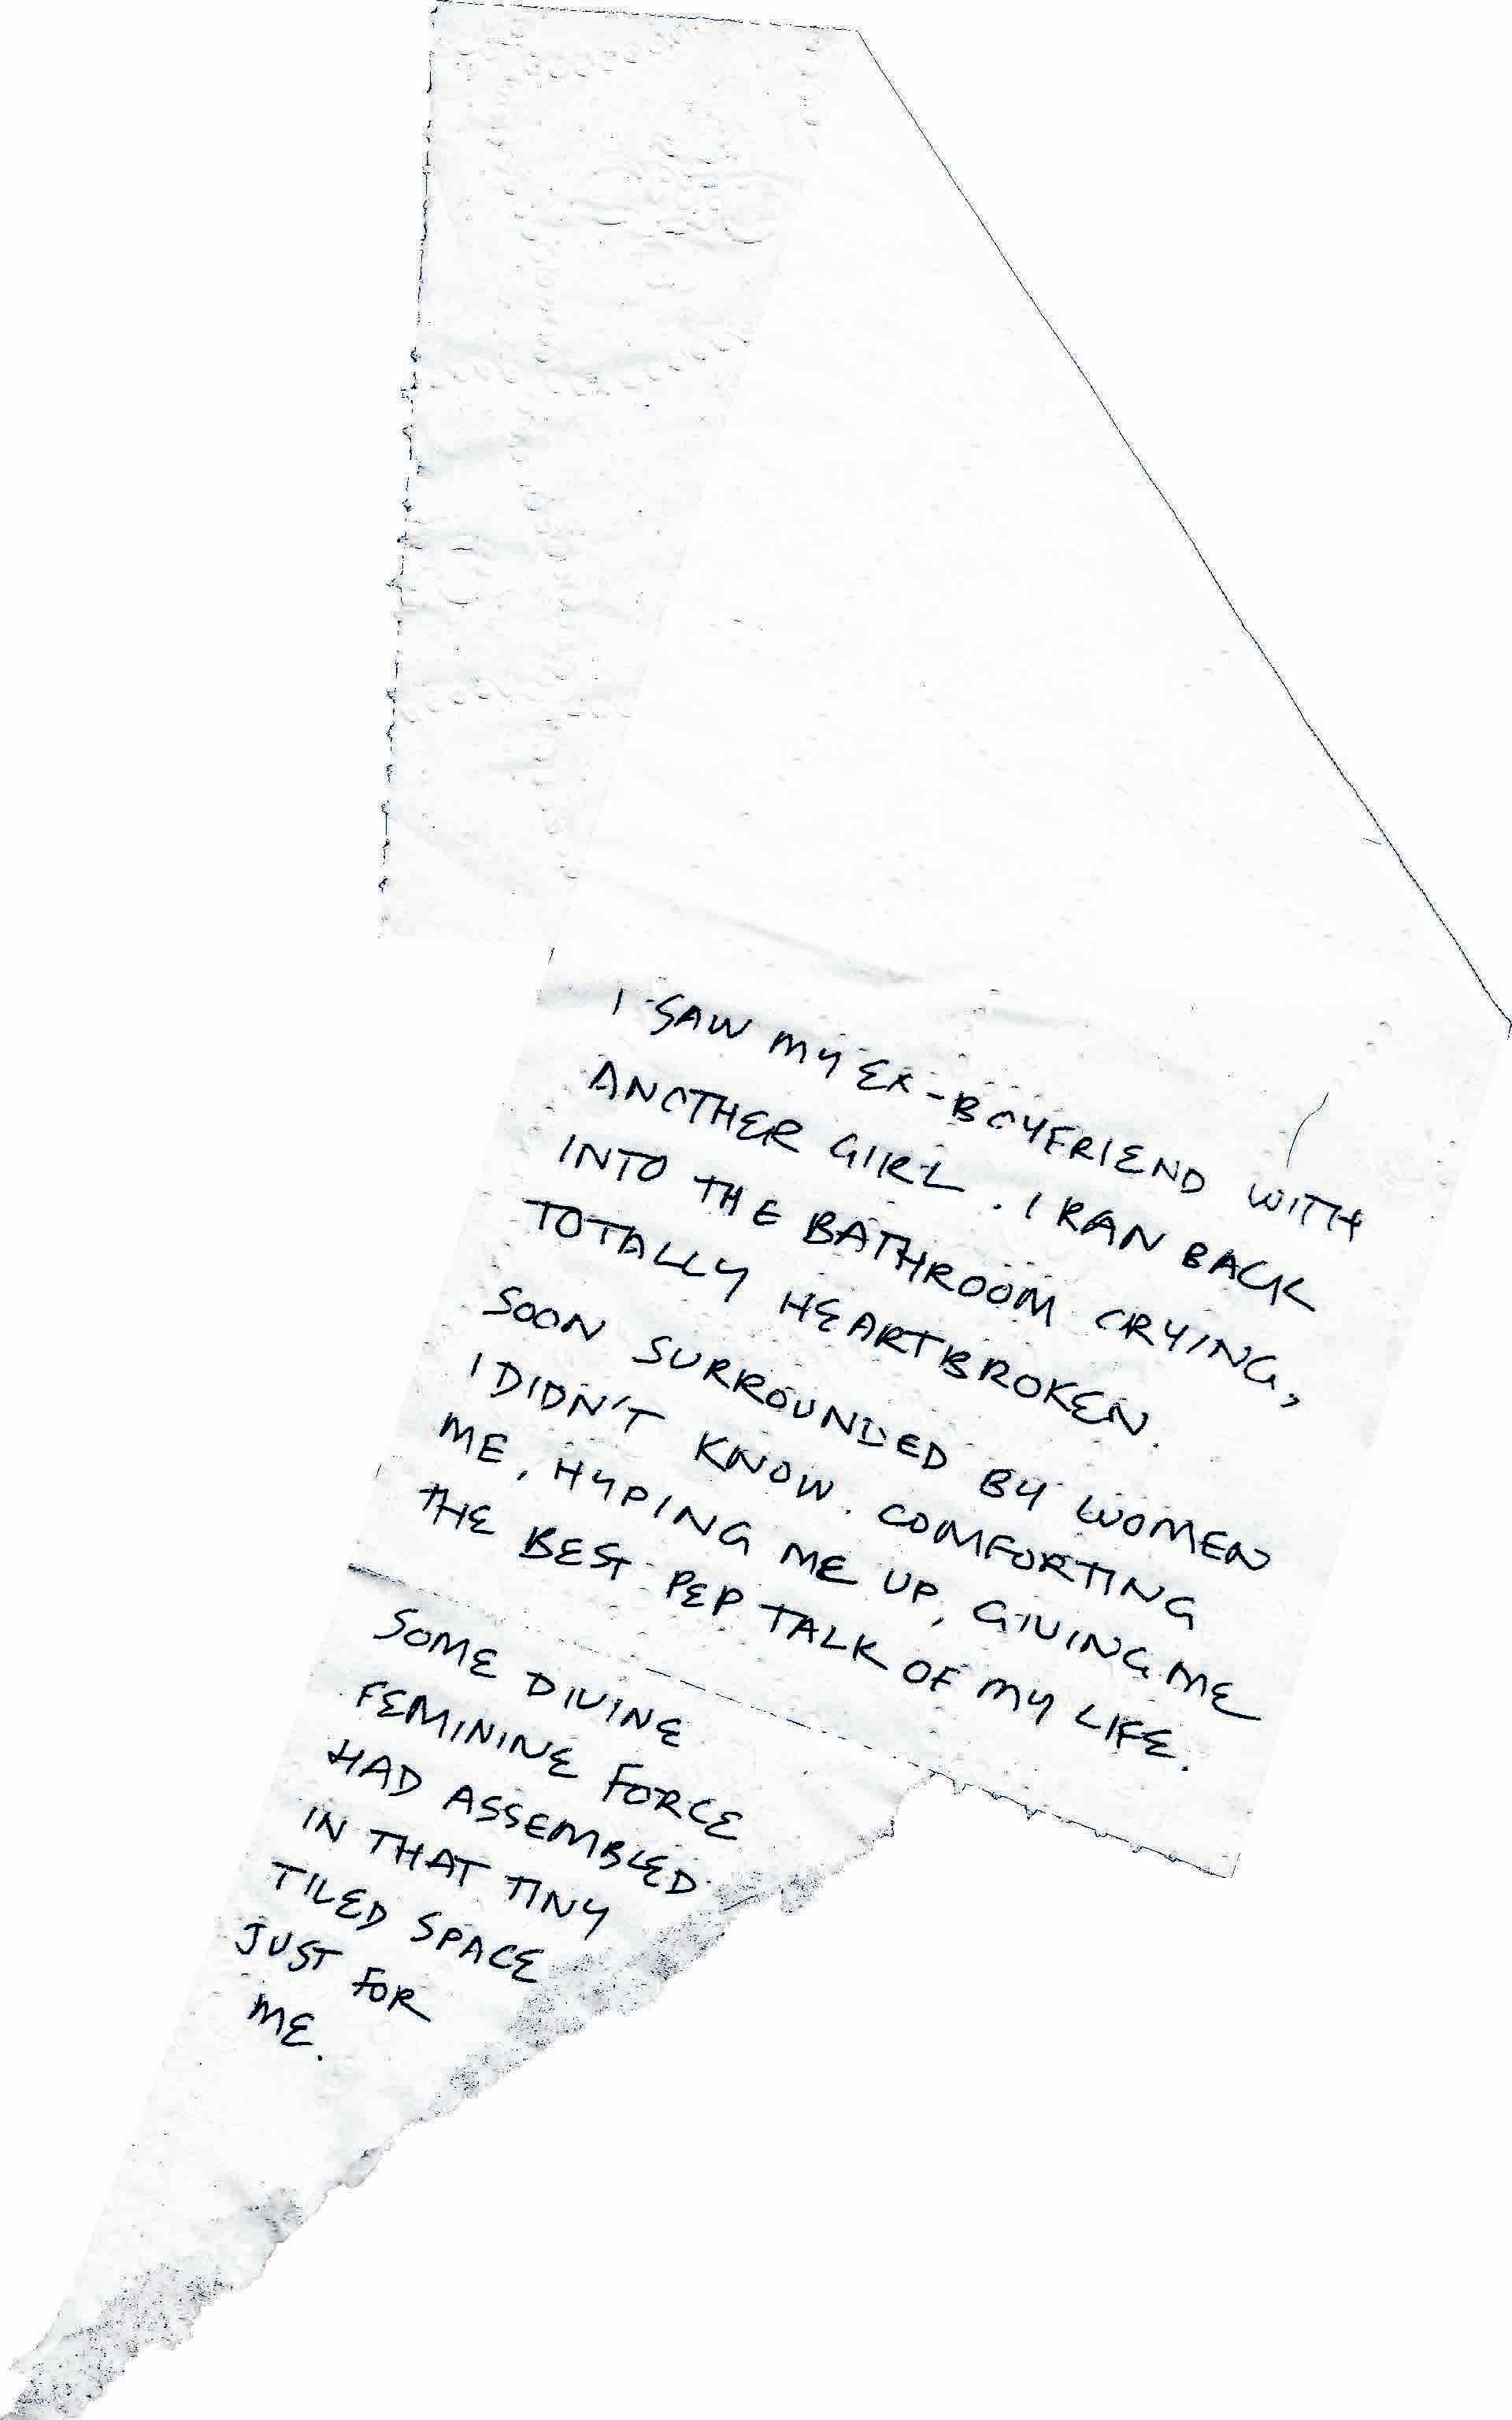 I SAW MY EX-BOYFRIEND WITH
ANOTHER GIRL. I RAN BACK
INTO THE BATHROOM CRYING,
TOTALLY HEARTBROKEN.
SOON SURROUNDED BY WOMEN
I DIDN'T KNOW. COMFORTING
ME, HYPING ME UP, GIVING ME
THE BEST PEP TALK OF MY LIFE.
SOME DIVINE
FEMININE FORCE
HAD ASSEMBLED
IN THAT TINY
TILED SPACE
JUST FOR
ME.